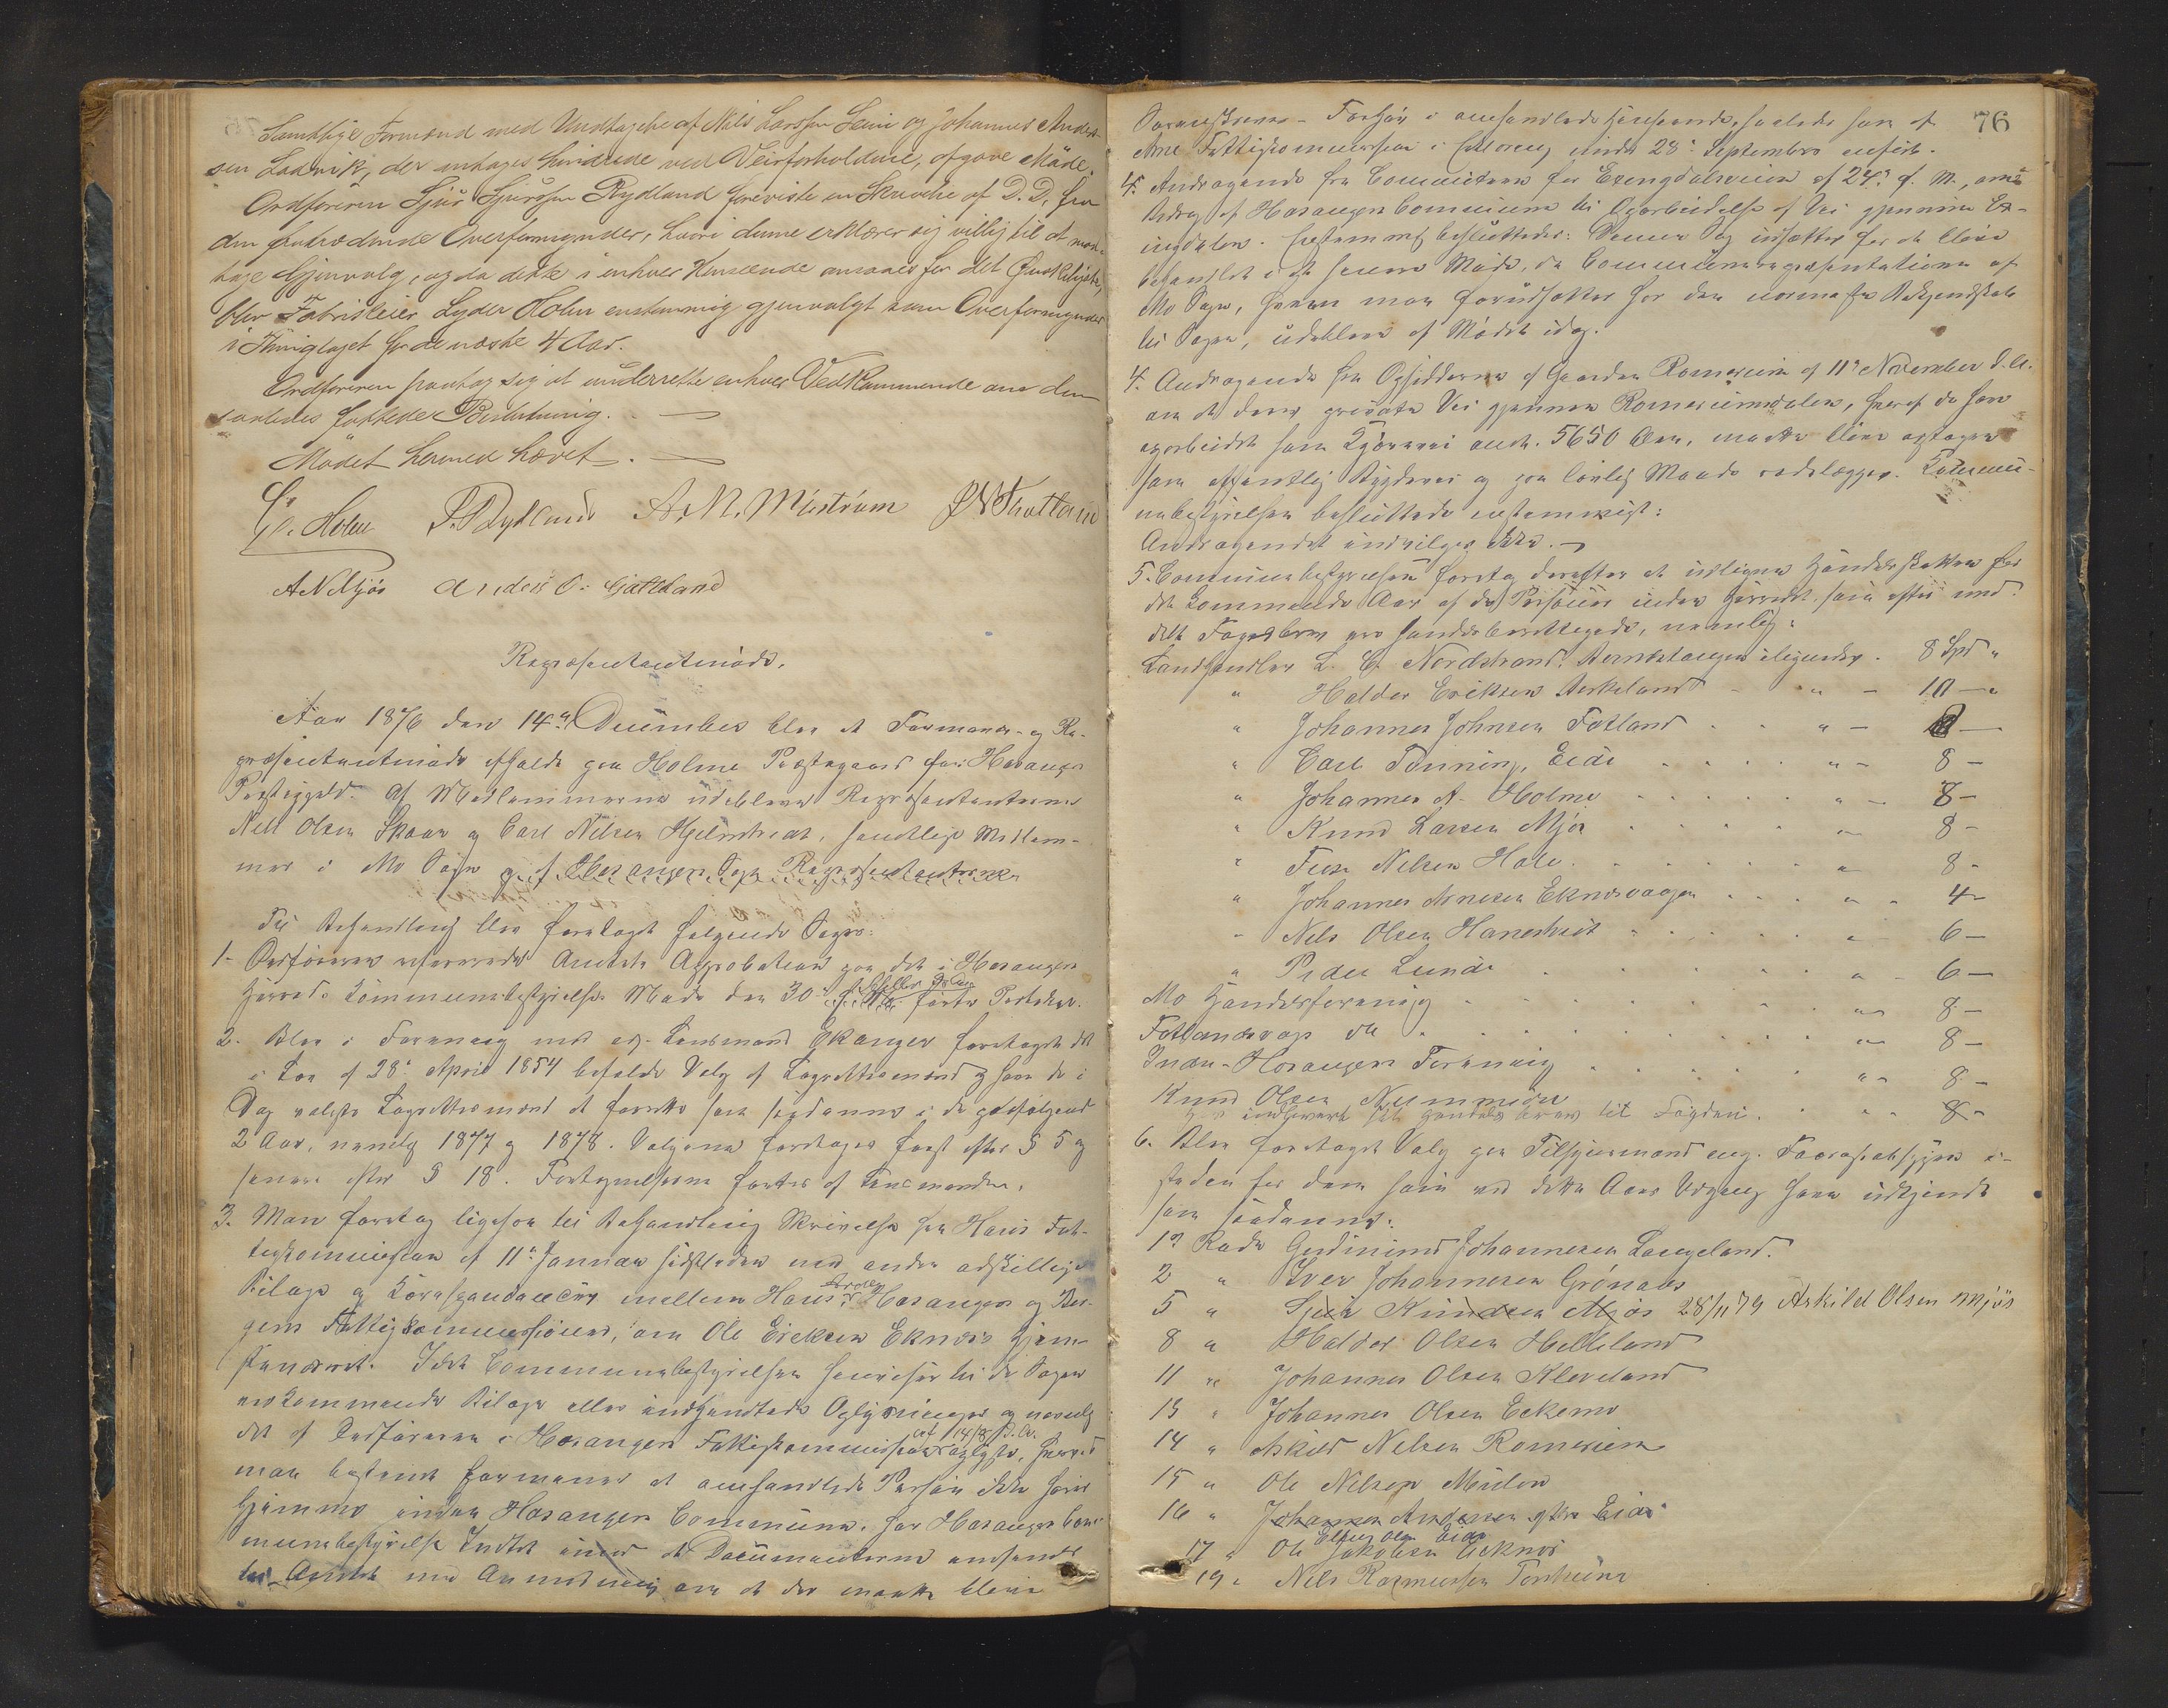 Samtlige Formænd med Undtagelse af Nils Larssen Leiri og Johannes Anders-
sen Ladvik, der antages hindrede ved Veirforholdene, afgave Møde.
Ordføreren Sjur Sjursen Rydland foreviste en Skrivelse af D. D. fra
den fratrædende Overformynder, hvori denne erklærer sig villig til at mod-
tage Gjenvalg, og da dette i enhver Henseende ansaaes for det Ønskeligste,
blev Fabrikeier Lyder Holm enstemmig gjenvalgt som Overformynder
i Thinglaget for de næste 4 Aar.
Ordføreren paatog sig at underrette enhver Vedkommende om den
saaledes fattede Beslutning.
Mødet hermed hævet.
Holm S. S. Rydland A. M. Mustrum
A N Mjøs Anders O. Gjetland
Repræsentantmøde.
Aar 1876 den 14de December blev et Formands- og Re-
præsentantmøde afholdt paa Holme Præstegaard for Hosanger
Præstegjeld. Af Medlemmerne udebleve Repræsentanterne
Nils Olsen Skaar og Carl Nilsen Hjelmtveit, samtlige Medlem-
mer i Mo Sogn og af Hosanger Sogn Repræsentanterne
Til Behandling blev foretaget følgende Sager:
1. Ordføreren refererede Amtets Approbation paa det i Hosanger
Herreds Kommunebestyrelses Møde den 30 førte Protokol.
2. Blev i Forening med Lensmand Ekanger foretaget det
i Lov af 28de April 1854 befalede Valg af Lagrettesmænd og som de i
Dag valgte Lagrettesmænd at forrette som saadanne i de paafølgende
2 Aar, nemlig 1877 og 1878. Valgene foretages først efter § 5 og
senere efter § 18. Fortegnelserne førtes af Lensmanden.
3. Man foretog ligesaa til Behandling Skrivelse fra Hauss Fat-
tigkommission af 11te Januar sidstleden med andre adskillige
Bilage og Korrespondancer mellem Hauss, Hosangers og Ber-
gens Fattigkommissioner, om Ole Ericksen Eknæs Hjem-
stavnsret. Idet Communebestyrelsen henviser til de Sagen
vedkommende Bilage eller indhentede Oplysninger og navnlig
det af Ordføreren i Hosangers Fattigkommission af 14/8 d. A. oplyste, hvorved
man bestemt formener at omhandlede Person ikke havde
Hjemme inden Hosangers Commune, har Hosangers Com-
munebestyrelse Intet imod at Documenterne omsendt
til Amtet med Anmodning om at der maatte blive
76
Forhør i omhandlede Henseende, saaledes som af
Arne Fattigkommission i Skrivelse under 28de September anført.
4. Andragende fra Comiteen for Exingdalsveien af 24de f. M., om
Bidrag af Hosangers Commune til Oparbeidelse af Vei gjennem Ex-
ingdalen. Eenstemmig besluttedes: Denne Sag udsættes for at blive
behandlet i et senere Møde, da Communerepræsentationen af
Mo Sogn, hvem man forudsætter har den nærmeste Bekjendtskab
til Sagen, udeblev af Mødet idag.
4. Andragende fra Opsidderne af Gaarden Romereim af 11te November d. A.
om at deres private Vei gjennem Romereimsdalen, hvoraf de have
oparbeidet som Kjørevei omtr. 5650 Alen, maatte blive optaget
som offentlig Bygdevei og paa lovlig Maade rodelægges. Kommu-
nebestyrelsen besluttede eenstemmigt:
Andragendet indvilges ikke.
5. Communebestyrelsen foretog derefter at udligne Handelsskatten for
det kommende Aar af de Personer inden Herredet, som efter med-
delt Fogedbrev ere handelsberettigede, nemlig:
Landhandler L. C. Nordstrand, Bernestangen ilignedes 8 Spd "
" Haldor Eriksen Birkeland " 10 —
" Johannes Johnsen Fotland " —
" Carl Tonning, Eide " 8 —
" Johannes A. Holme " 8 —
" Knud Larsen Mjøs " 8 —
" Nilsen Hole " 8 —
" Johannes Arnesen Eknesvaagen " 4 —
" Nils Olsen Hanestveit " 6 —
" Peder Lunde " 6 —
Mo Handelsforening " 8 —
Fotlandsvaags do " 8 —
Indre-Hosangers Forening " 8 —
Knud Olsen Nummedal " 8 —
har indleveret sit Handels brev til Fogden
6. Blev foretaget Valg paa Tilsynsmænd ang. Faareskabsygen i-
steden for dem som ved dette Aars Udgang have udtjent
som saadanne:
1ste Rode Gudmund Johannesen Langeland.
2 " Iver Johannesen Grønaas
5 " Sjur Knudsen Mjøs 28/11 79 Askild Olsen Mjøs
8 " Haldor Olsen Helleland
11 " Johannes Olsen Kleveland
13 " Johannes Olsen Eckemo
14 " Askild Nilsen Romereim
15 " Ole Nilsen Mulen
16 " Johannes Andersen Eide
Elling Olsen Eide
17 " Ole Jakobsen Eeknæs
19 " Nils Rasmussen Tonheim